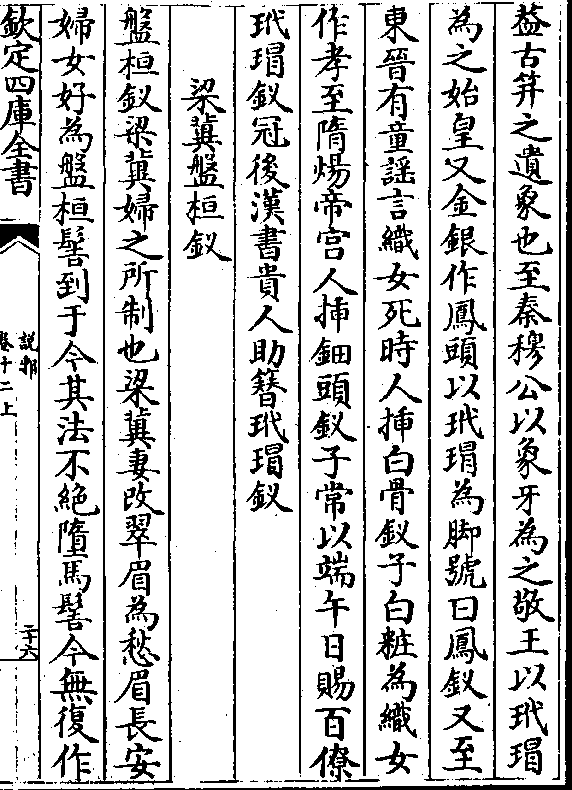 葢古笄之遺象也至秦穆公以象牙為之敬王以玳瑁
為之始皇又金銀作鳳頭以玳瑁為脚號曰鳳釵又至
東晉有童謡言織女死時人揷白骨釵子白粧為織女
作孝至隋煬帝宫人揷鈿頭釵子常以端午日賜百僚
玳瑁釵冠後漢書貴人助簪玳瑁釵
梁冀盤桓釵
盤桓釵梁冀婦之所制也梁冀妻改翠眉為愁眉長安
婦女好為盤桓髻到于今其法不絶墮馬髻今無復作
欽定四庫全書
說郛
卷十二上
二十六